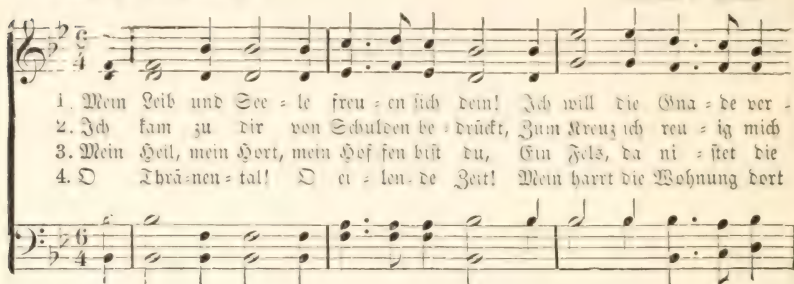 1. Mein Leib und See = le freu = en sich dein! Ich will die Gna = de ver =
2. Ich kam zu dir von Schulden be = drückt, Zum Kreuz ich reu = ig mich
3. Mein Heil, mein Hort, mein Hof fen bist du, Ein Fels, da ni = stet die
4. O Thrä = nen = tal! O ei = len = de Zeit! Mein harrt die Wohnung dort